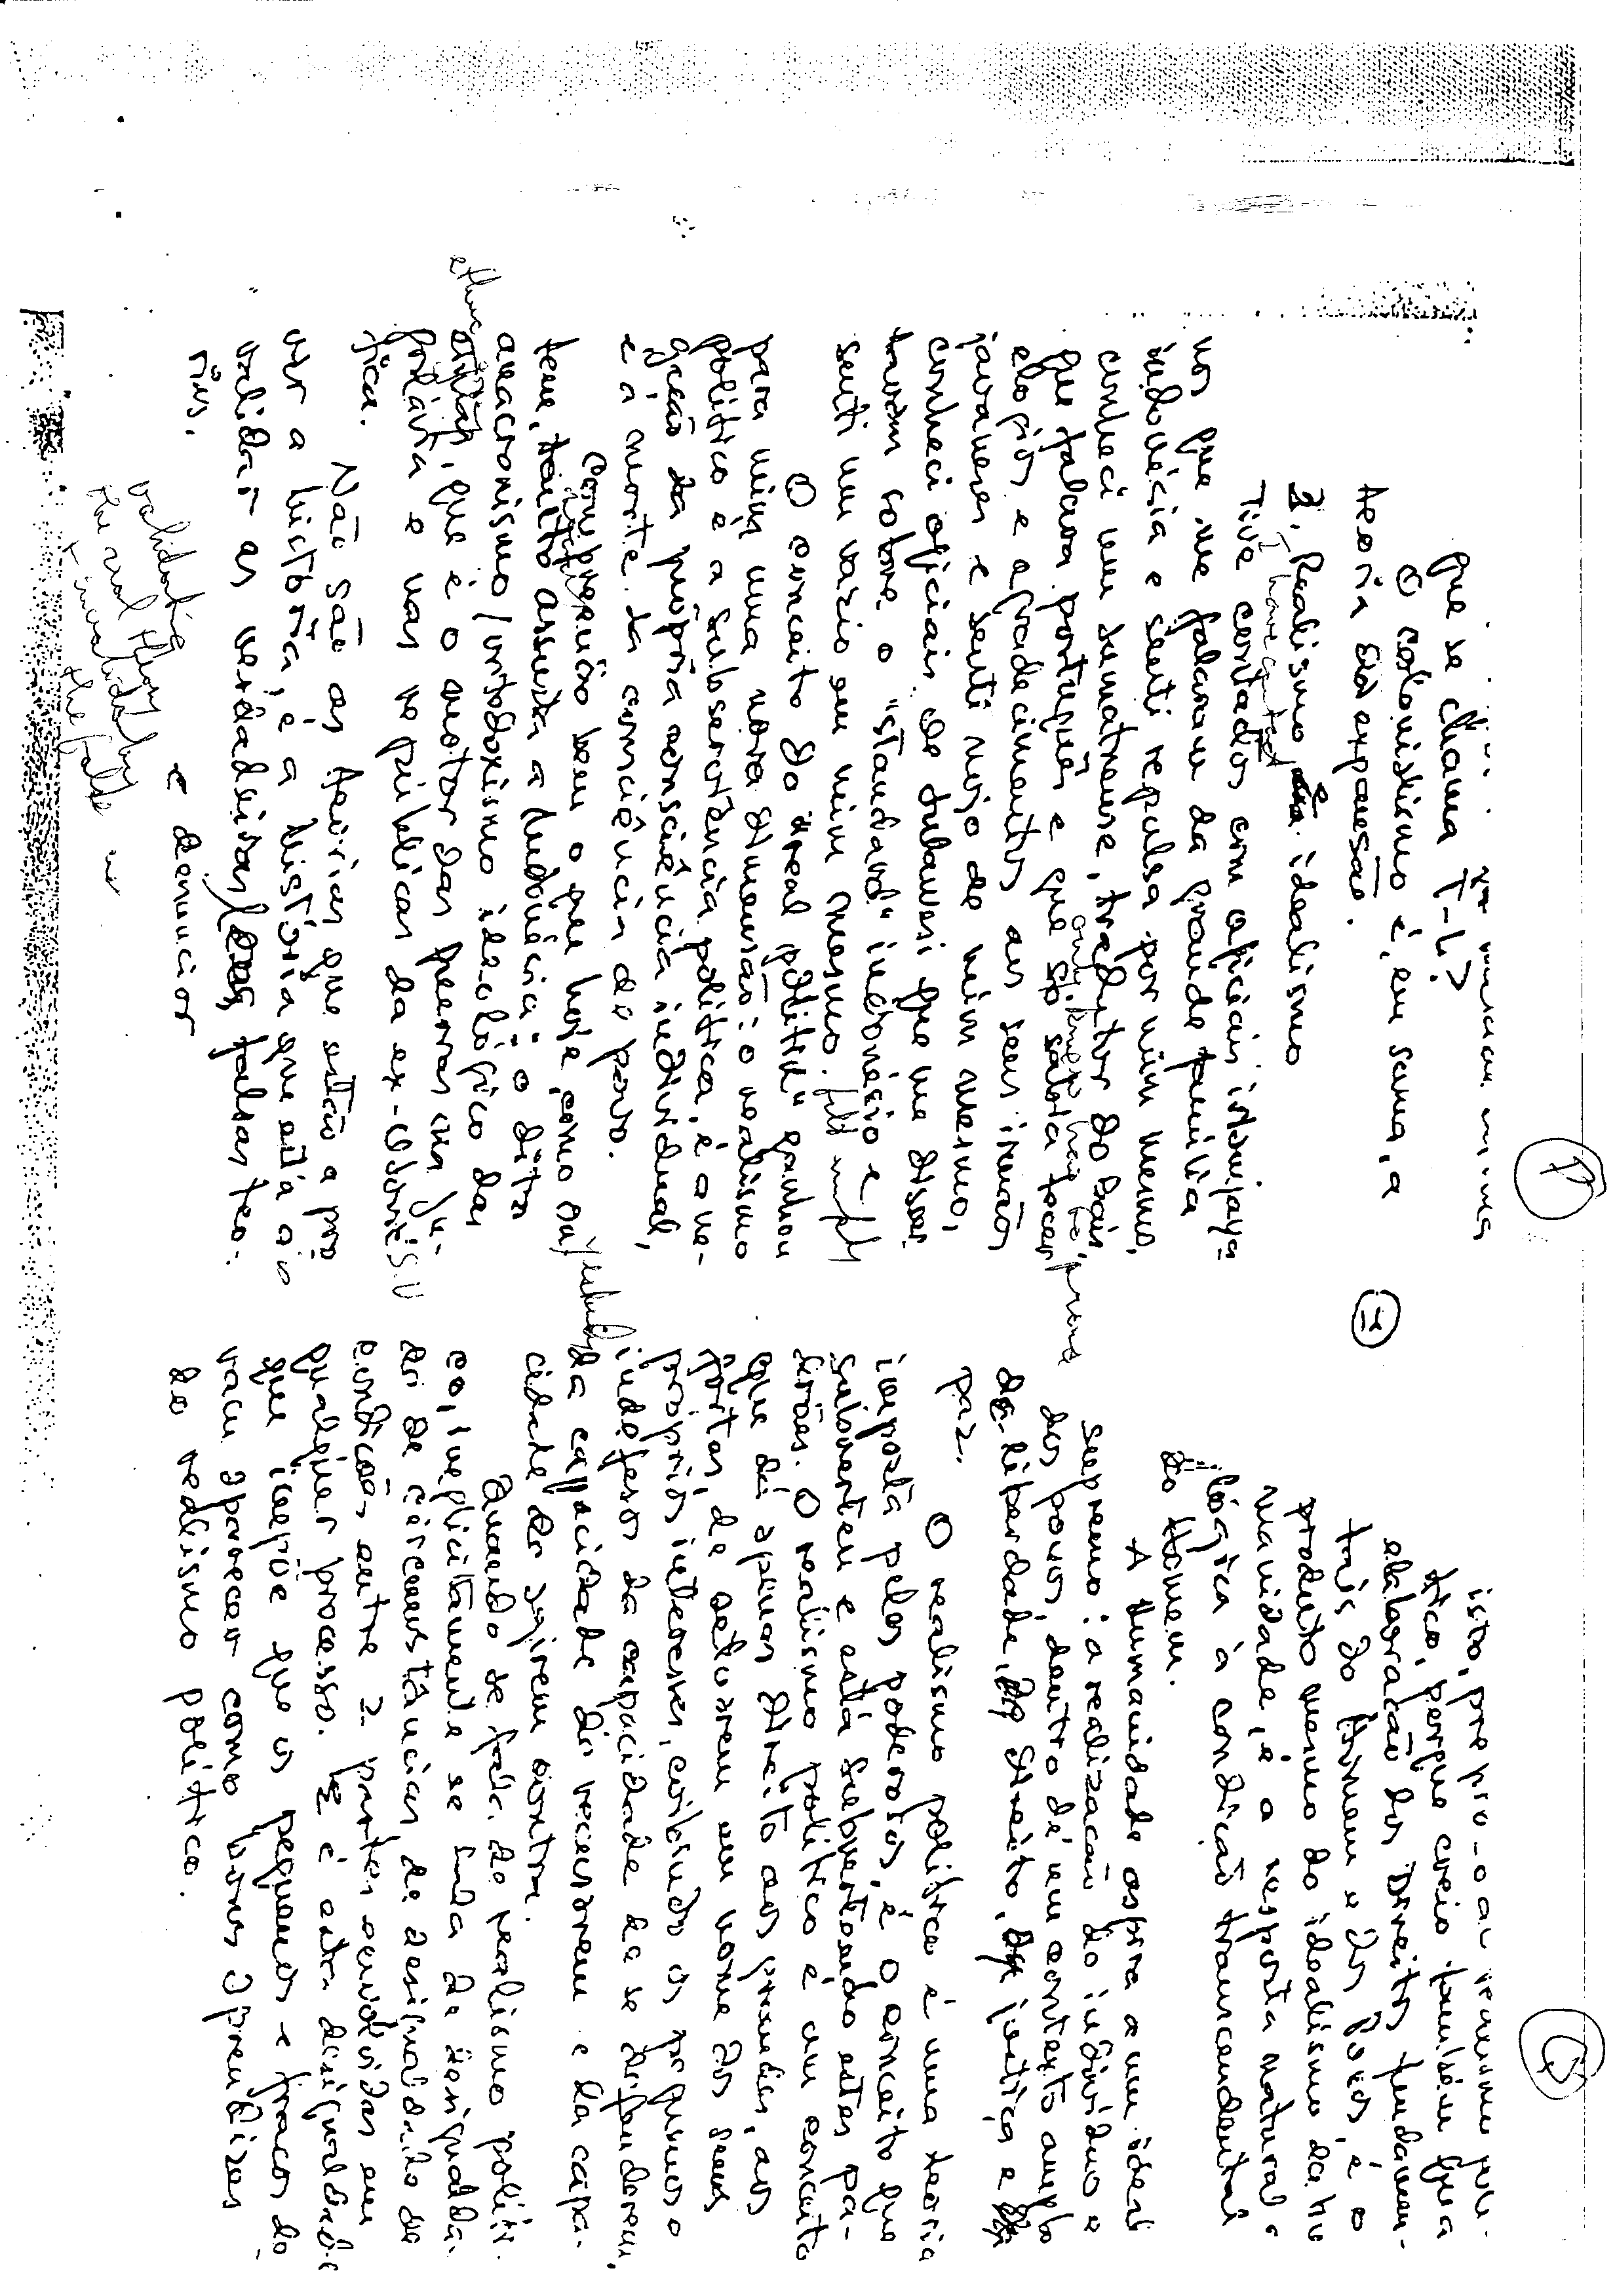 que se chama T-L?
O colonialismo é, em suma, a
teoria da expansão.
2. Realismo e idealismo
Tive contactos com oficiais indojava-
nos que me falaram da grande família
indonésia e senti repulsa por mim mesmo,
conheci um sumatrense, tradutor do bais,
que falava português e que só sabia tecer
elogios e agradecimentos aos seus irmãos
javaneses e senti nojo de mim mesmo,
conheci oficiais de Sulawesi que me disser
am sobre o "standard" indonésio e
senti um vazio em mim mesmo.
O conceito do "real politik" ganhou
para mim uma nova dimensão: o realismo
político é a subserviência política, é a ne-
gação da própria consciência individual,
e a morte da consciência do povo.
Compreendo bem o que hoje, como on
tem, tanto assusta a Indonésia: o dito
anacronismo / ortodoxismo ideológico das
etnias, que é o motor das guerras na Ju-
goslávia e nas repúblicas da ex-
tica.
Não são as teorias que estão a pro
var a história, é a história que está a
validar as verdadeiras / das falsas teo-
rias.
e denunciar
validate
the real theory
the false
11
isto,
tico, porque creio também que a
elaboração dos Direitos fundamen-
tais do Homem e dos Povos, é o
produto mesmo do idealismo da hu
manidade, é a resposta natural e
lógica à condição transcendental
do Homem.
A humanidade aspira a um ideal
supremo: a realização do indivíduo e
dos povos, dentro de um contexto amplo
de liberdade, de direito, de justiça e de
paz.
O realismo político é uma teoria
imposta pelos poderosos, é o conceito que
subverteu e está subvertendo estes pa-
drões. O realismo político é um conceito
que dá apenas direito aos grandes, aos
fortes, de actuarem em nome dos seus
próprios interesses, coibindo os pequenos e
indefesos da capacidade de se defenderem,
da capacidade de recusarem e da capa-
cidade de agirem contra.
Quando se fala de realismo políti-
co, implicitamente se fala de desigualda-
de de circunstâncias, de desigualdade de
condições entre 2 partes envolvidas em
qualquer processo. E é esta desigualdade
que impõe que os pequenos e fracos de
vam aparecer como bons aprendizes
do realismo político.